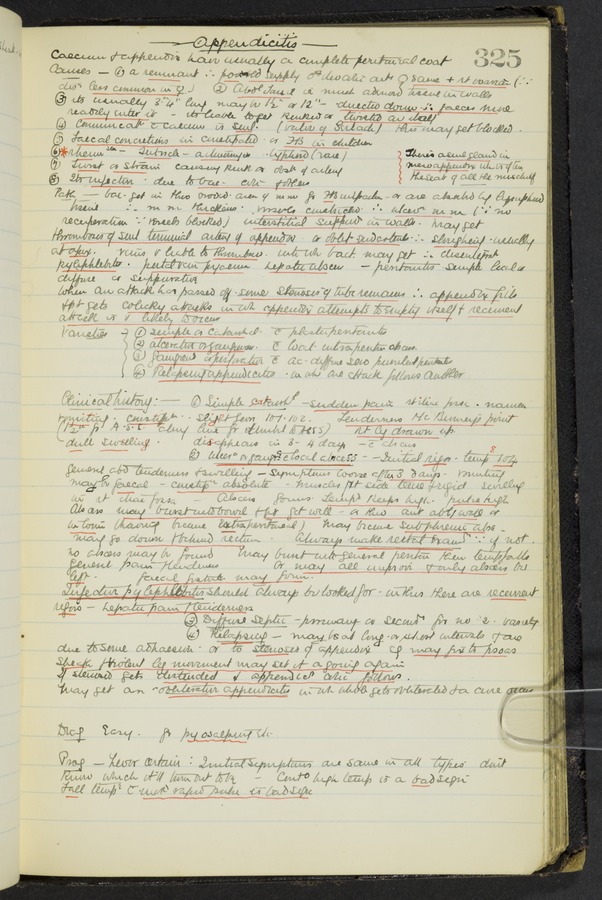 Appendicitis
325
Caecum & appendix have usually a complete peritoneal coat
Causes — ① a remnant ∴ poor bld supply
② Abdt lymph
③ its usually 3"-4" long may be ½" or 12" — directed down ∴ faeces more
readily enter it — its liable to get kinked or twisted on itself
④ Communicatn c caecum is small (valve of Gerlach) this may get blocked.
⑤ Faecal concretions in constipated or FB in children
⑥ rheum — Tubercle - actinomyces - typhoid (rare)
⑦ Twist or strain causing kink or obst of artery
⑧ Str infection due to bac. coli & others
There is a small gland in
meso appendix which is often
the seat of all the mischief
Path — bac. get in thro
tissue ∴ m m thickens vessels constricted ∴ ulcer m m (∵ no
recuperation ∵ vessels blocked) interstitial suppurn in walls. May get
thrombosis of small terminal artery of appendix or oblit endarteritis ∴ sloughing usually
at apex. Veins liable to thrombose into wh bact. may get ∴
pylephlebitis portal vein pyaemia hepatic abscess — peritonitis simple local or
diffuse or suppurative
When an attack has passed off some stenosis of tube remains ∴ appendix fills
& pt gets colicky attacks in wh appendix attempts to empty itself & recurrent
attack is v likely to occur
Varieties
① simple or catarrhal c plastic peritonitis
② ulcerative or c local intraperiton abscess.
③ gangrenous or perforative c ac. diffuse sero purulent peritonitis
④ Relapsing appendicitis in wh one attack follows another
Clinical history: — ① Simple catarrhl — sudden pain rt iliac foss. nausea
vomiting, constipn. Slight fever 101-102. Tenderness McBurney's point
(1½" fr A.S.S. along line fr umbil to ASS) rt leg drawn up
dull swelling. disappears in 3-4 days
② ulcer or gang c local abscess — Initial rigor. temp 104
General abd tenderness & swelling — symptoms worse after 3 days. vomiting
may be faecal — constipn absolute — muscles rt side tense & rigid swelling
in rt iliac foss — Abscess forms temp keeps high. pulse high
Abscess may burst into bowel & pt get well — or thro ant abdl wall or
(having become extraperitoneal) may become subphrenic abs —
may go down & behind rectum. Always make rectal exam ∵ if not.
no abscess may be found May burst into general periton then temp falls
general pain & tenderness Or may all improve & only abscess be
left. faecal fistula may form.
Infective pylephlebitis should always be looked for. in this there are recurrent
rigors — hepatic pain & tenderness
③ Diffuse septic — primary or second fr no 2. variety
④ Relapsing — may be at long or short intervals & are
due to some adhaesion or to stenosis of appendix eg may fix to psoas
sheath & violent leg movement may set it agoing again
If stenosed gets distended & appendicl colic follows.
May get an obliterative appendicitis in wh whole gets obliterated & a cure occurs
Diag Easy. fr pyosalpinx etc.
Prog — Never certain: Initial symptoms are same in all types don't
know which it'll turn out to be — Contd high temp is a bad sign
Fall temp c weak rapid pulse is bad sign